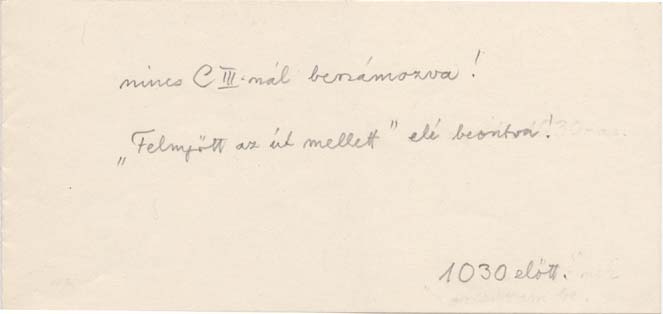 nincs C III-nál beszámozva!
„Felmjött az út mellett” elé beosztva!
1030 előtt.